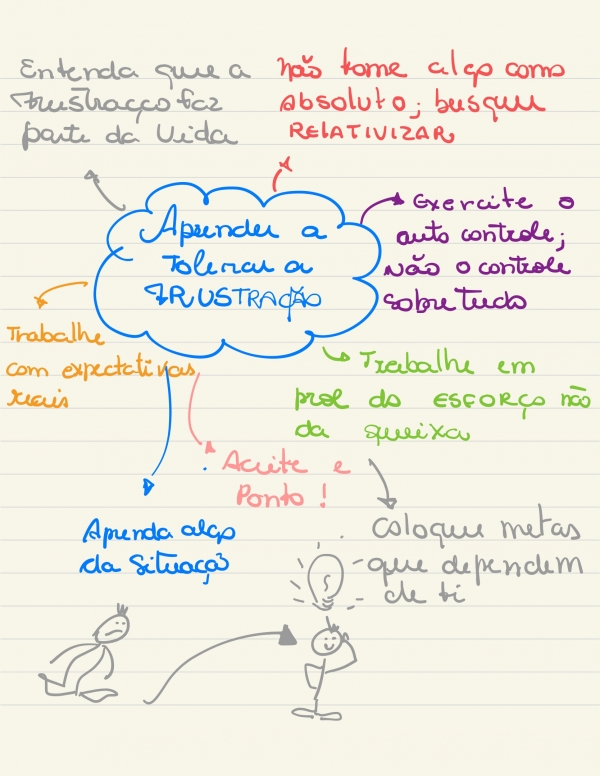 Entenda que a
Frustração faz
parte da Vida
não tome algo como
Absoluto; busque
RELATIVIZAR
Aprender a
Tolerar a
FRUSTRAÇÃO
Exercite o
auto controle;
não o controle
sobre tudo
Trabalhe
com expectativas
reais
Trabalhe em
prol do ESFORÇO não
da queixa
Aceite e
Ponto !
Aprenda algo
da Situação
Coloque metas
que dependem
de ti